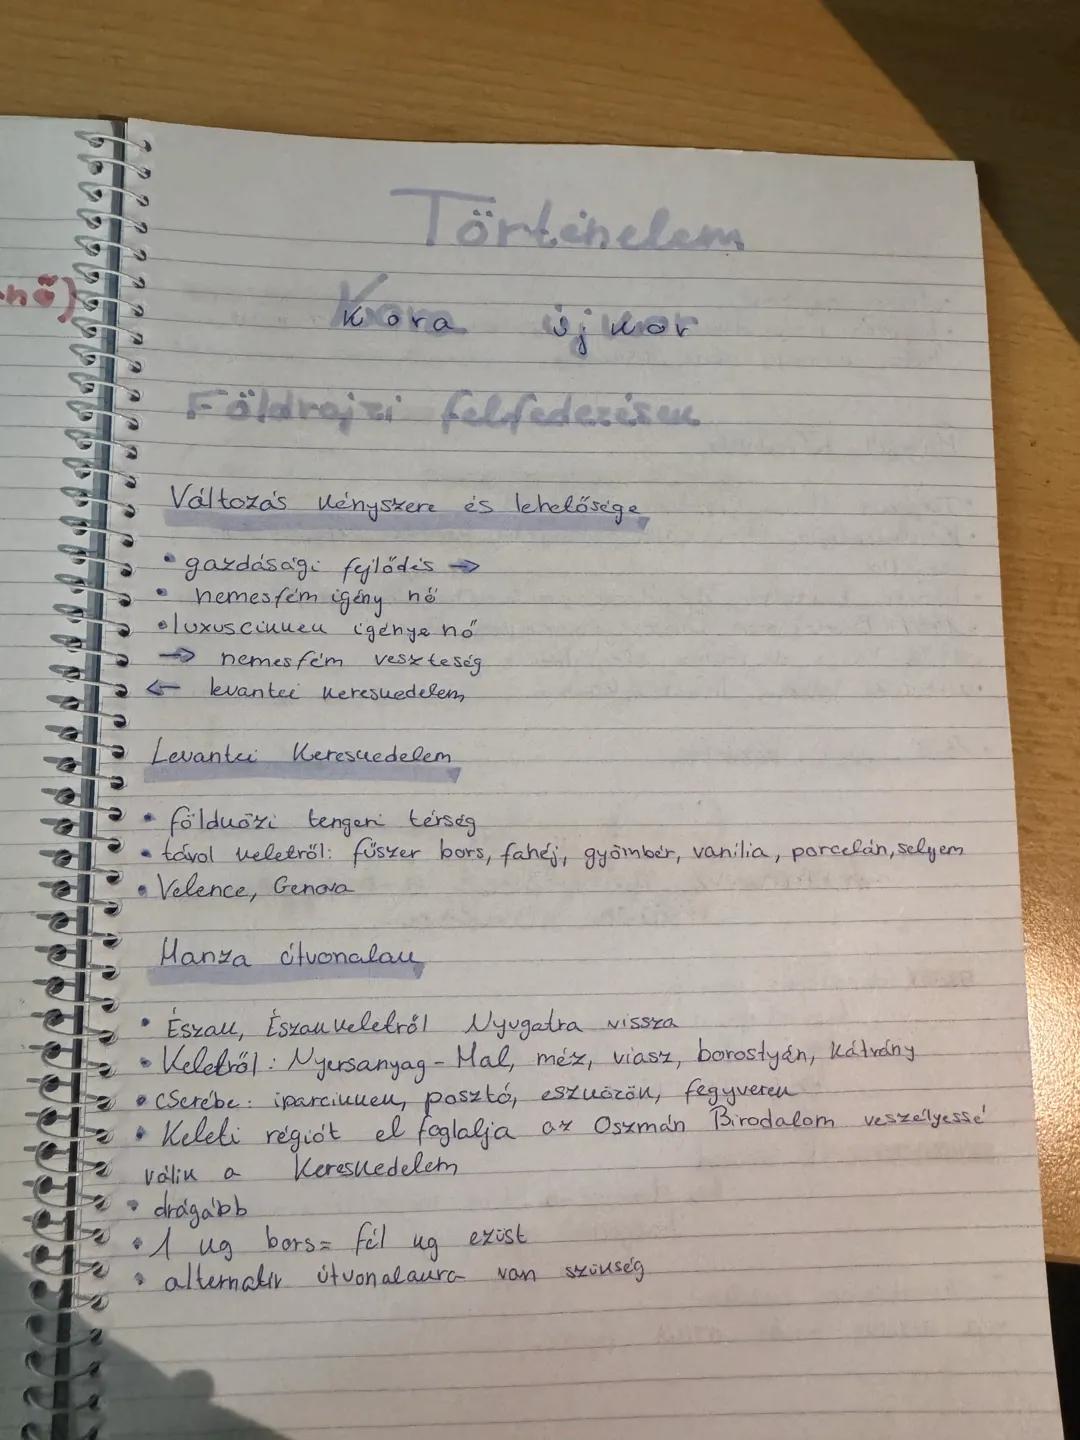 nő)
Történelem
Kora újkor
Földrajzi felfedezések
Változás kényszere és lehetősége
• gazdasági fejlődés →
• nemesfém igény nő
• luxuscikkek igénye nő
→ nemesfém veszteség
← levantei kereskedelem
Levantei Kereskedelem
• földközi tengeri térség
• távol keletről: fűszer bors, fahéj, gyömbér, vanília, porcelán, selyem
• Velence, Genova
Hanza útvonalak
• Észak, Északkeletről Nyugatra vissza
• Keletről: Nyersanyag - Hal, méz, viasz, borostyán, kátrány
• cserébe: iparcikkek, posztó, eszközök, fegyverek
• Keleti régiót el foglalja az Oszmán Birodalom veszélyessé
válik a kereskedelem
• drágább
• 1 kg bors = fél kg ezüst
• alternatív útvonalakra van szükség